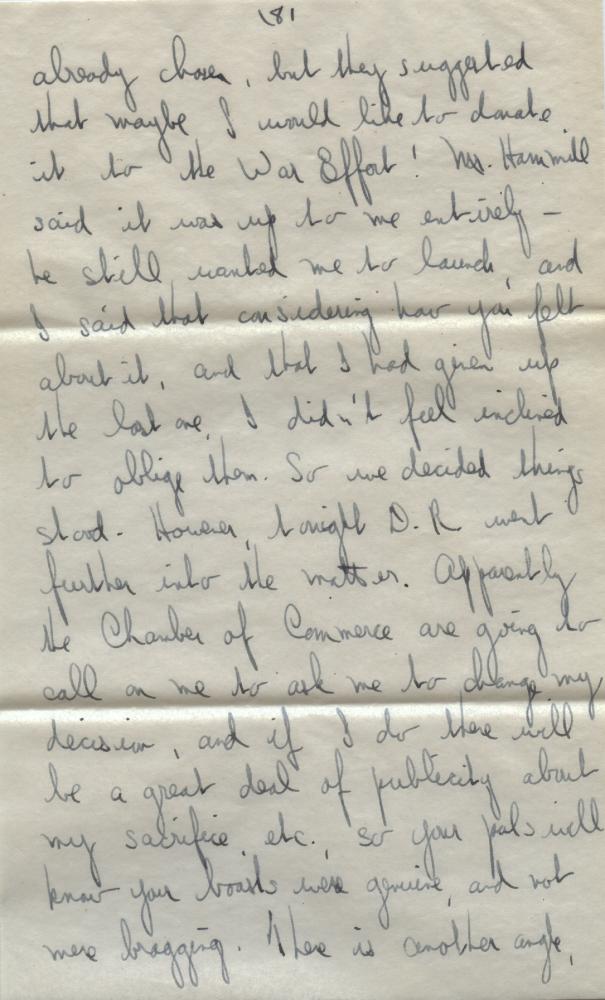 181
already chosen, but they suggested
that maybe I would like to donate
it to the War Effort! Mr. Hammill
said it was up to me entirely -
he still wanted me to launch, and
I said that considering how you felt
about it, and that I had given up
the last one, I didn't feel inclined
to oblige them. So we decided things
stood. However, tonight D.R. went
further into the matter. Apparently
the Chamber of Commerce are going to
call on me to ask me to change my
decision, and if I do there will
be a great deal of publicity about
my sacrifice, etc., so your pals will
know your boasts were genuine, and not
mere bragging. There is another angle,